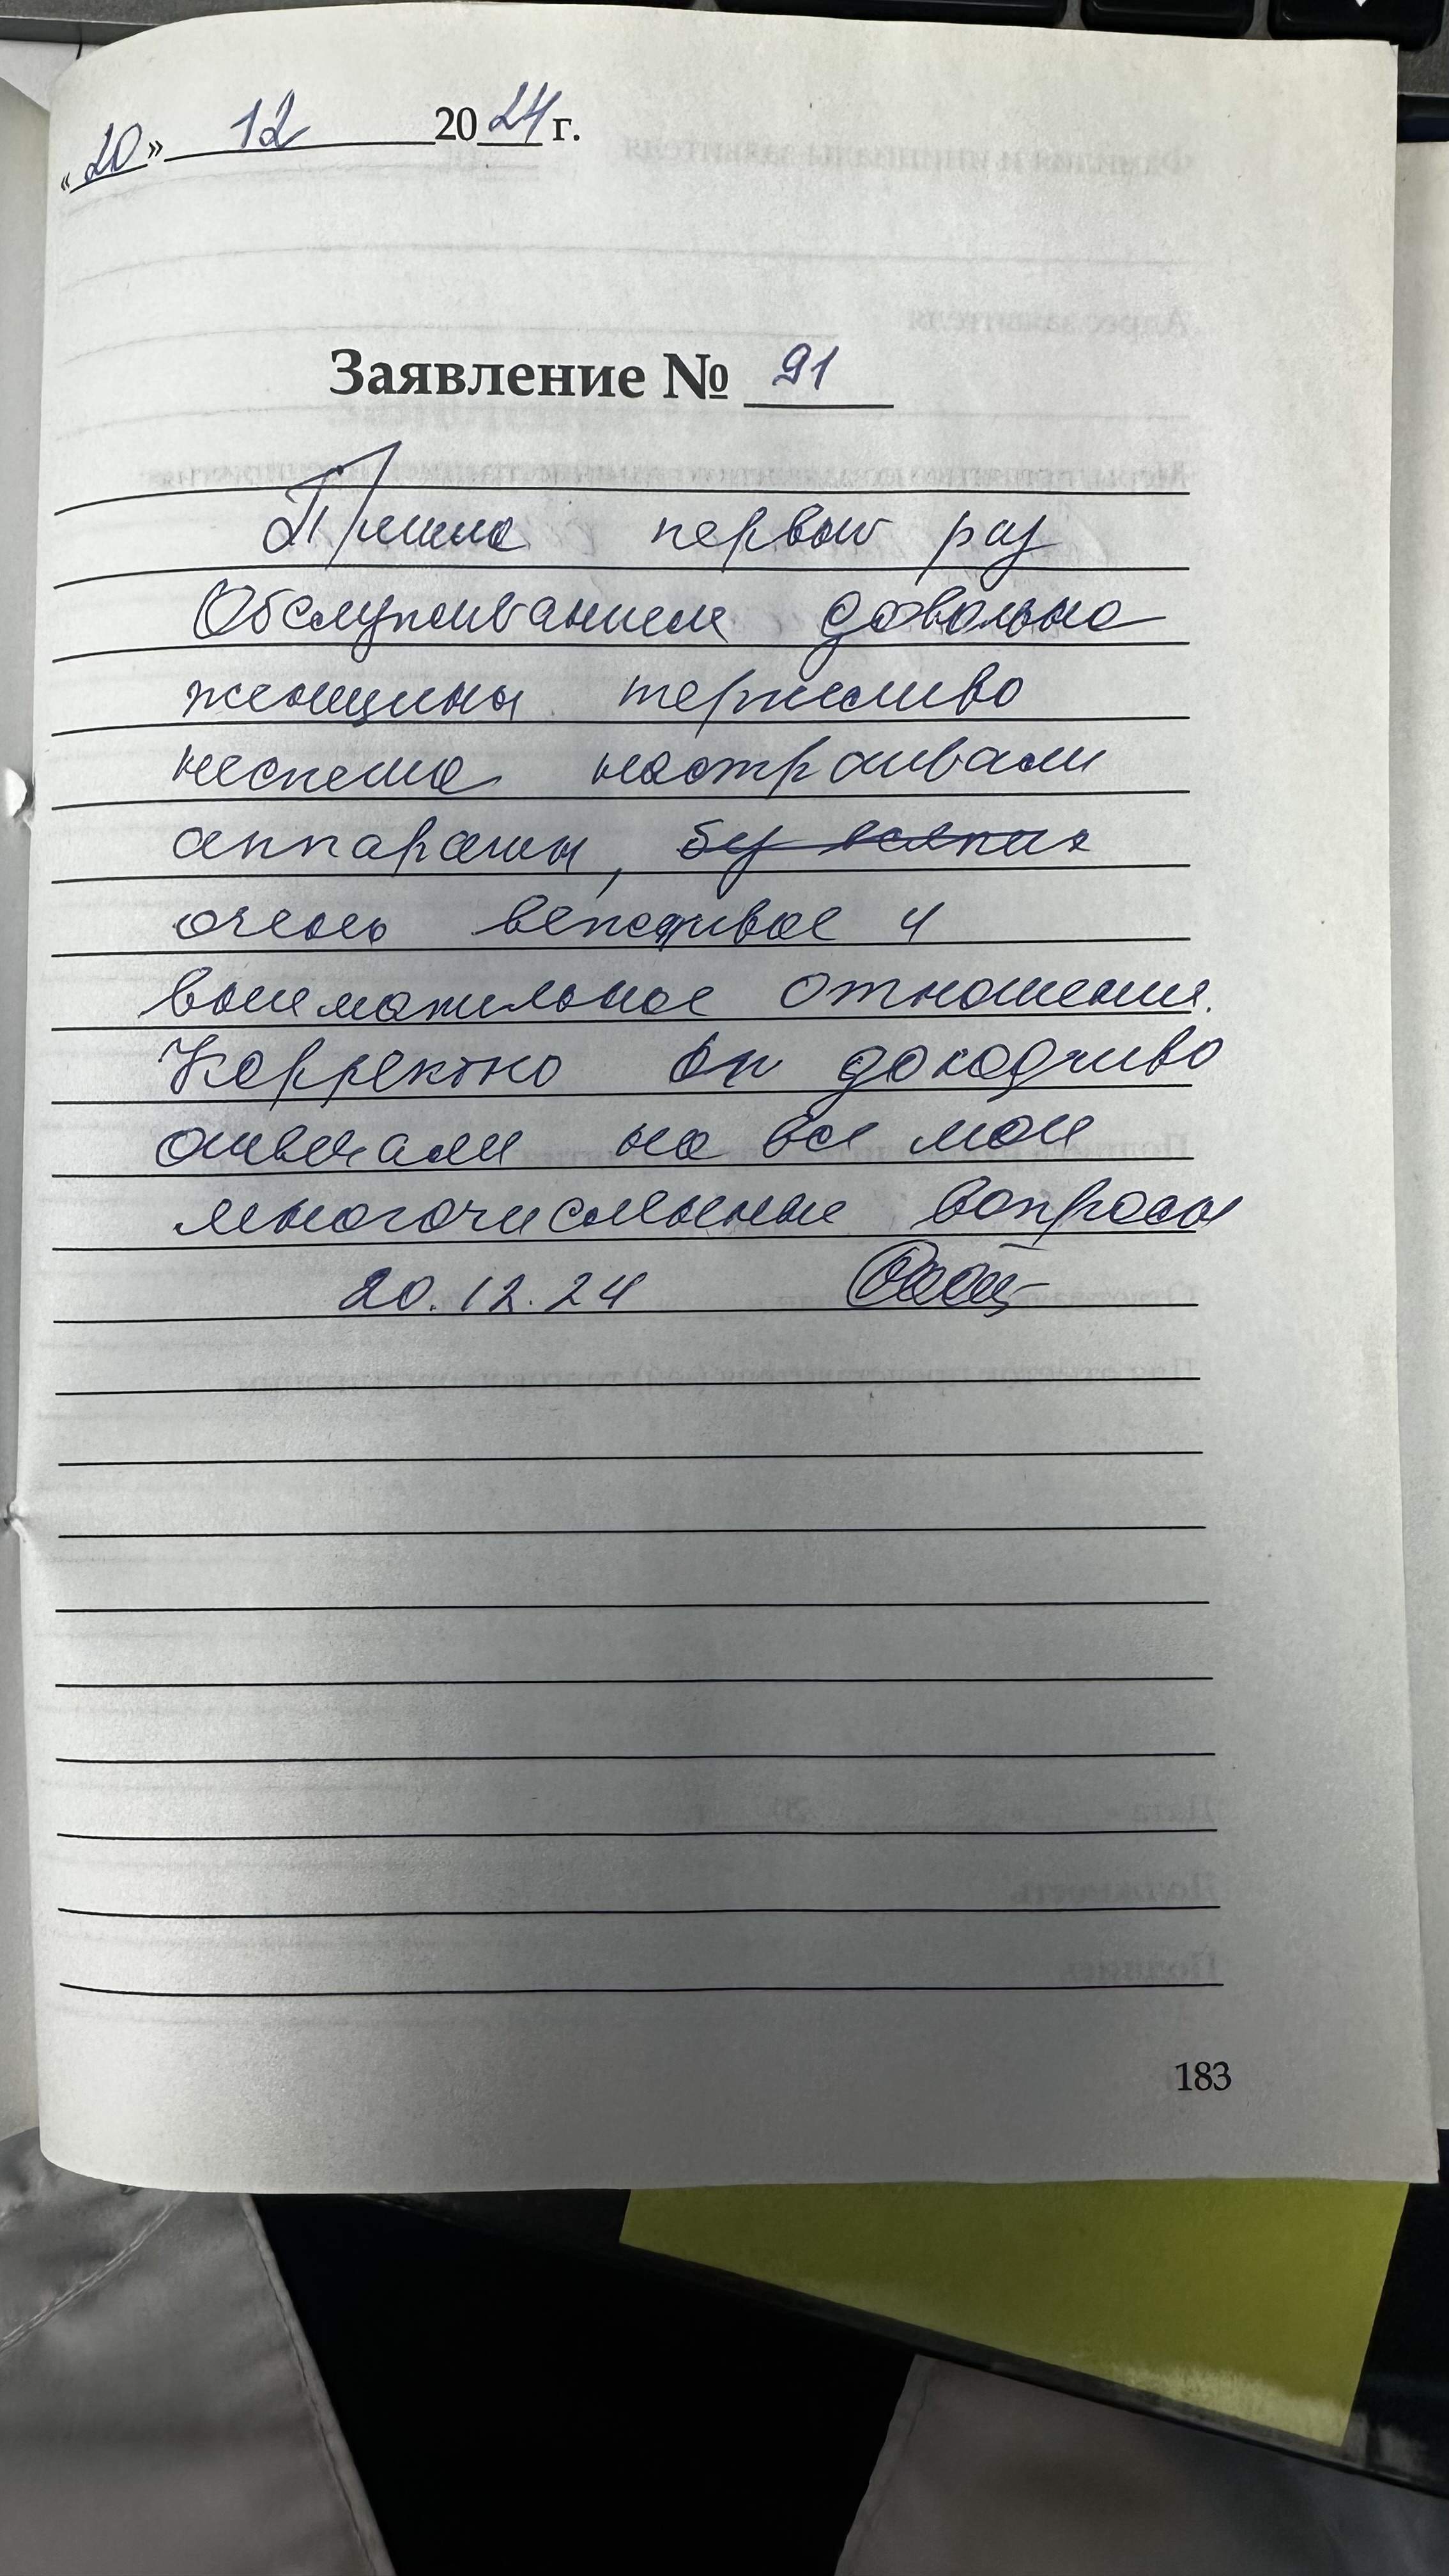 «20» 12 2024 г.
Заявление № 91
Пришла первый раз
Обслуживанием довольна
женщины терпеливо
неспеша настраивали
аппараты,
очень вежливое и
внимательное отношения.
Корректно доходчиво
отвечали на все мои
многочисленные вопросы
20.12.24
183